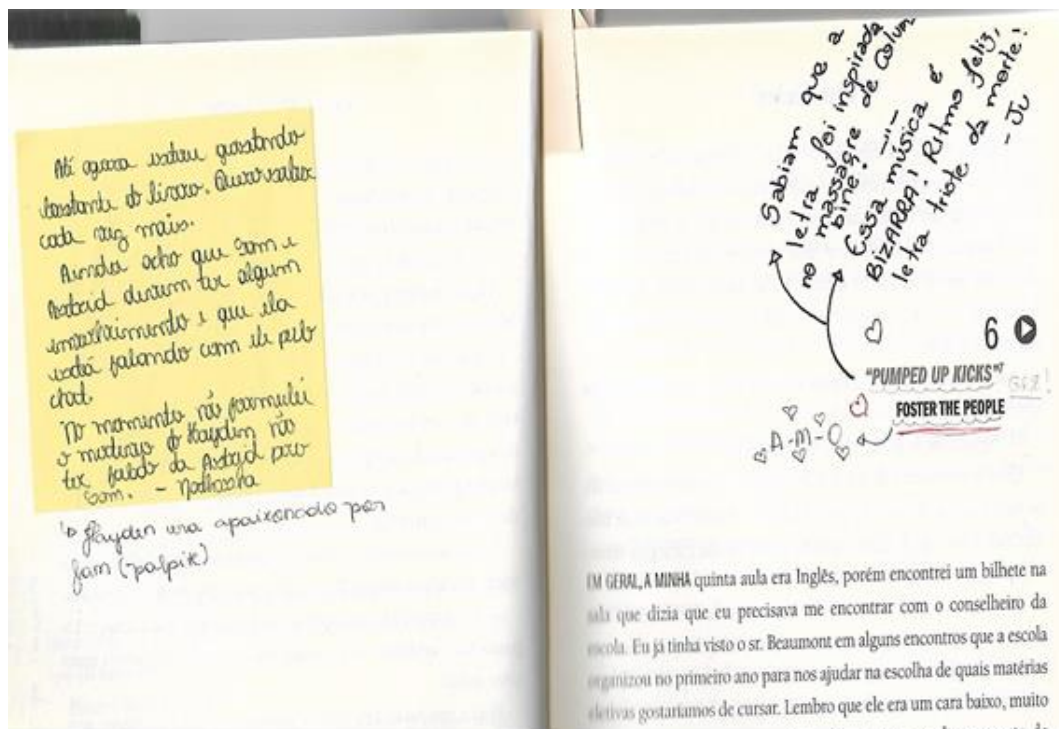 Até agora estou gostando
bastante do livro. Quero saber
cada vez mais.
Ainda acho que Sam e
Astrid devem ter algum
envolvimento e que ela
está falando com ele pelo
chat.
No momento não formulei
o motivo do Hayden não
ter falado da Astrid pro
Sam. - Nathasha
↳ Hayden era apaixonado por
Sam (palpite)
Sabiam que a
letra foi inspirada
no massagre de Colum
bine?
Essa música é
BIZARRA! Ritmo feliz,
letra triste da morte!
- Ju
6
"PUMPED UP KICKS"
FOSTER THE PEOPLE
A-M-O
EM GERAL, A MINHA quinta aula era Inglês, porém encontrei um bilhete na
sala que dizia que eu precisava me encontrar com o conselheiro da
escola. Eu já tinha visto o sr. Beaumont em alguns encontros que a escola
organizou no primeiro ano para nos ajudar na escolha de quais matérias
eletivas gostaríamos de cursar. Lembro que ele era um cara baixo, muito